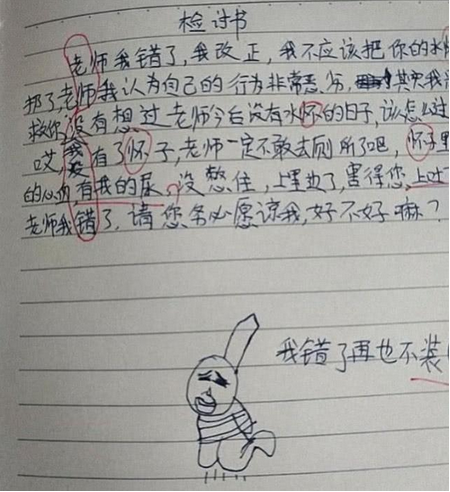 检讨书
老师我错了,我改正,我不应该把你的水
老师我认为自己的行为非常恶劣,其实我
没有想过老师今后没有水怀的日子,该怎么过
哎,没有了怀子,老师一定不敢去厕所了吧,怀子里
的心血,有我的尿,没憋住,上里边了,害得您,上吐下
老师我错了,请您务必愿谅我,好不好嘛?
我错了再也不装